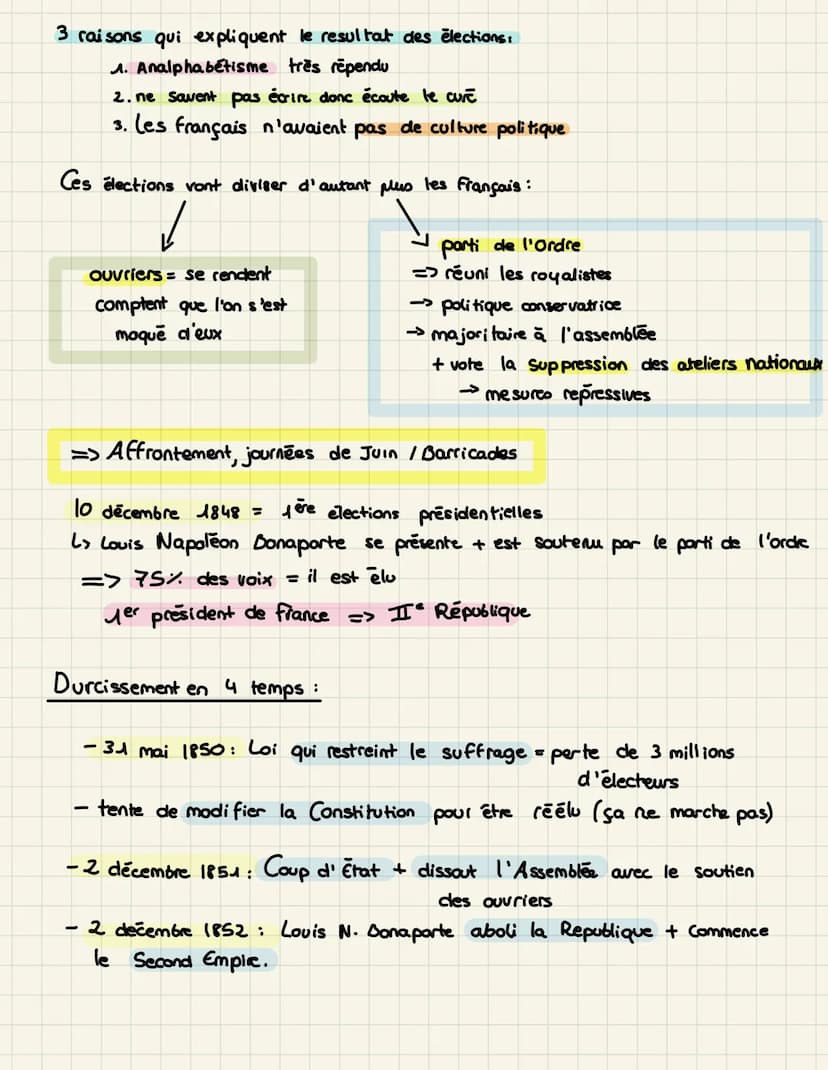 3 raisons qui expliquent le resultat des élections:
1. Analphabétisme très répendu
2. ne savent pas écrire donc écoute le curé
3. Les français n'avaient pas de culture politique
Ces élections vont diviser d'autant plus les Français :
ouvriers = se rendent
comptent que l'on s'est
moqué d'eux
parti de l'Ordre
=> réuni les royalistes
-> politique conservatrice
-> majoritaire à l'assemblée
+ vote la suppression des ateliers nationaux
-> mesures repressives
=> Affrontement, journées de Juin / Barricades
10 décembre 1848 = 1ère élections présidentielles
↳ Louis Napoléon Bonaparte se présente + est soutenu par le parti de l'ordre
=> 75% des voix = il est élu
1er président de france => IIe République
Durcissement en 4 temps :
- 31 mai 1850 : Loi qui restreint le suffrage = perte de 3 millions
d'électeurs
- tente de modifier la Constitution pour être réélu (ça ne marche pas)
- 2 décembre 1851 : Coup d'État + dissout l'Assemblée avec le soutien
des ouvriers
- 2 décembre 1852 : Louis N. Bonaparte aboli la Republique + Commence
le Second Empire.